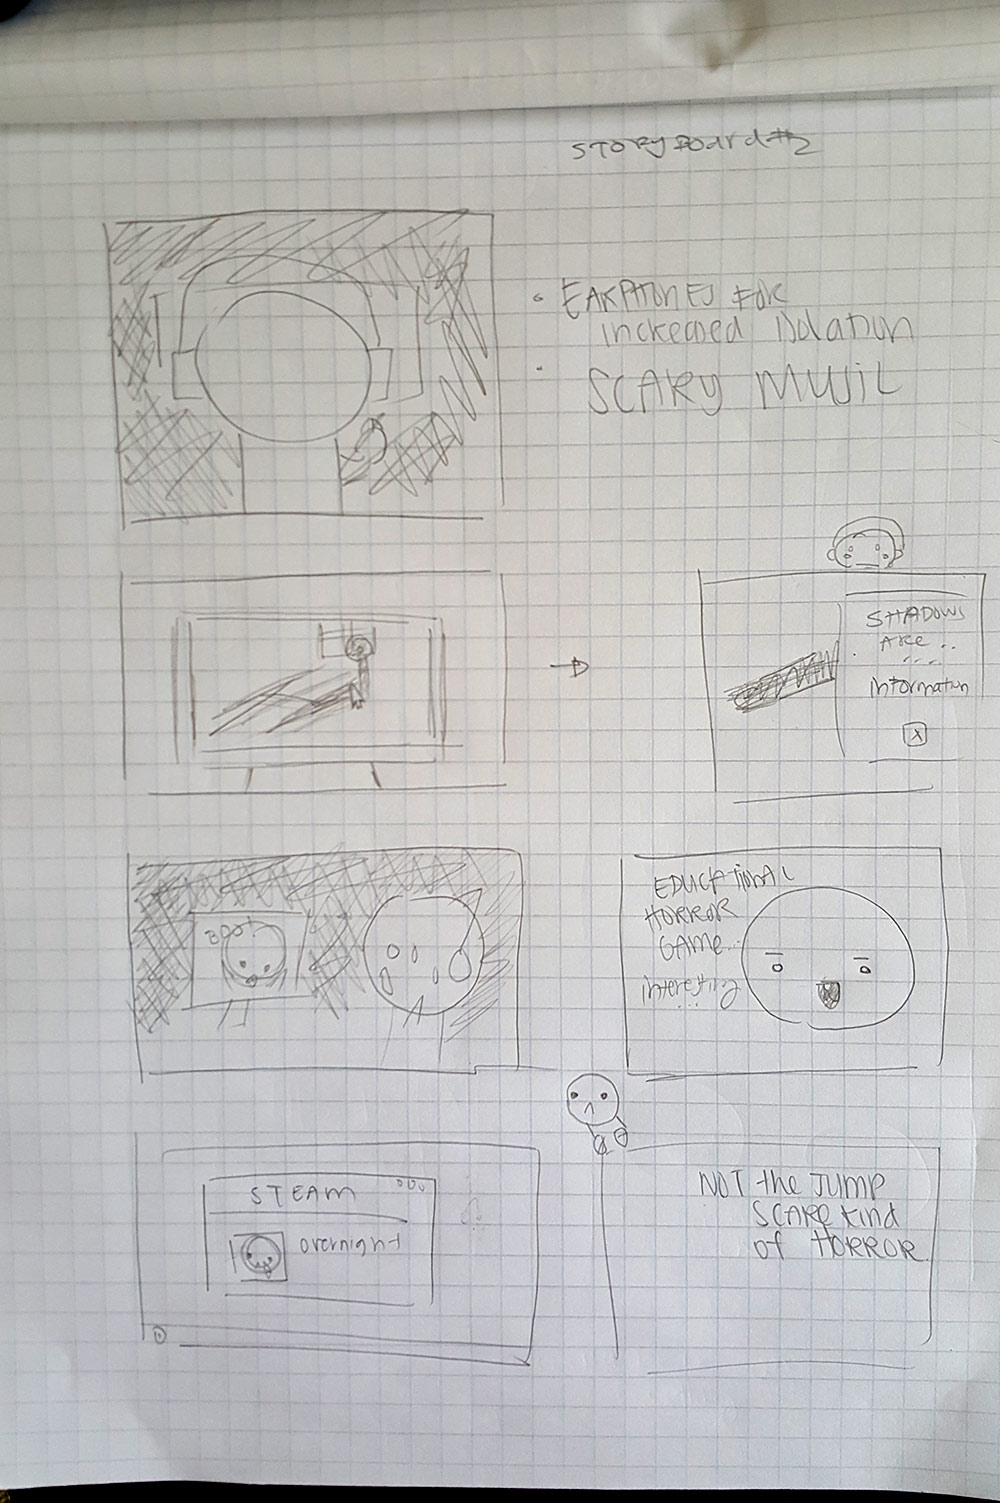 STORYBOARD #2
EARPHONES FOR
increased isolation
SCARY MUSIC
SHADOWS
ARE ..
....
information
X
BOO!
EDUCATIONAL
HORROR
GAME...
interesting
...
STEAM
overnight
NOT the JUMP
SCARE kind
of HORROR